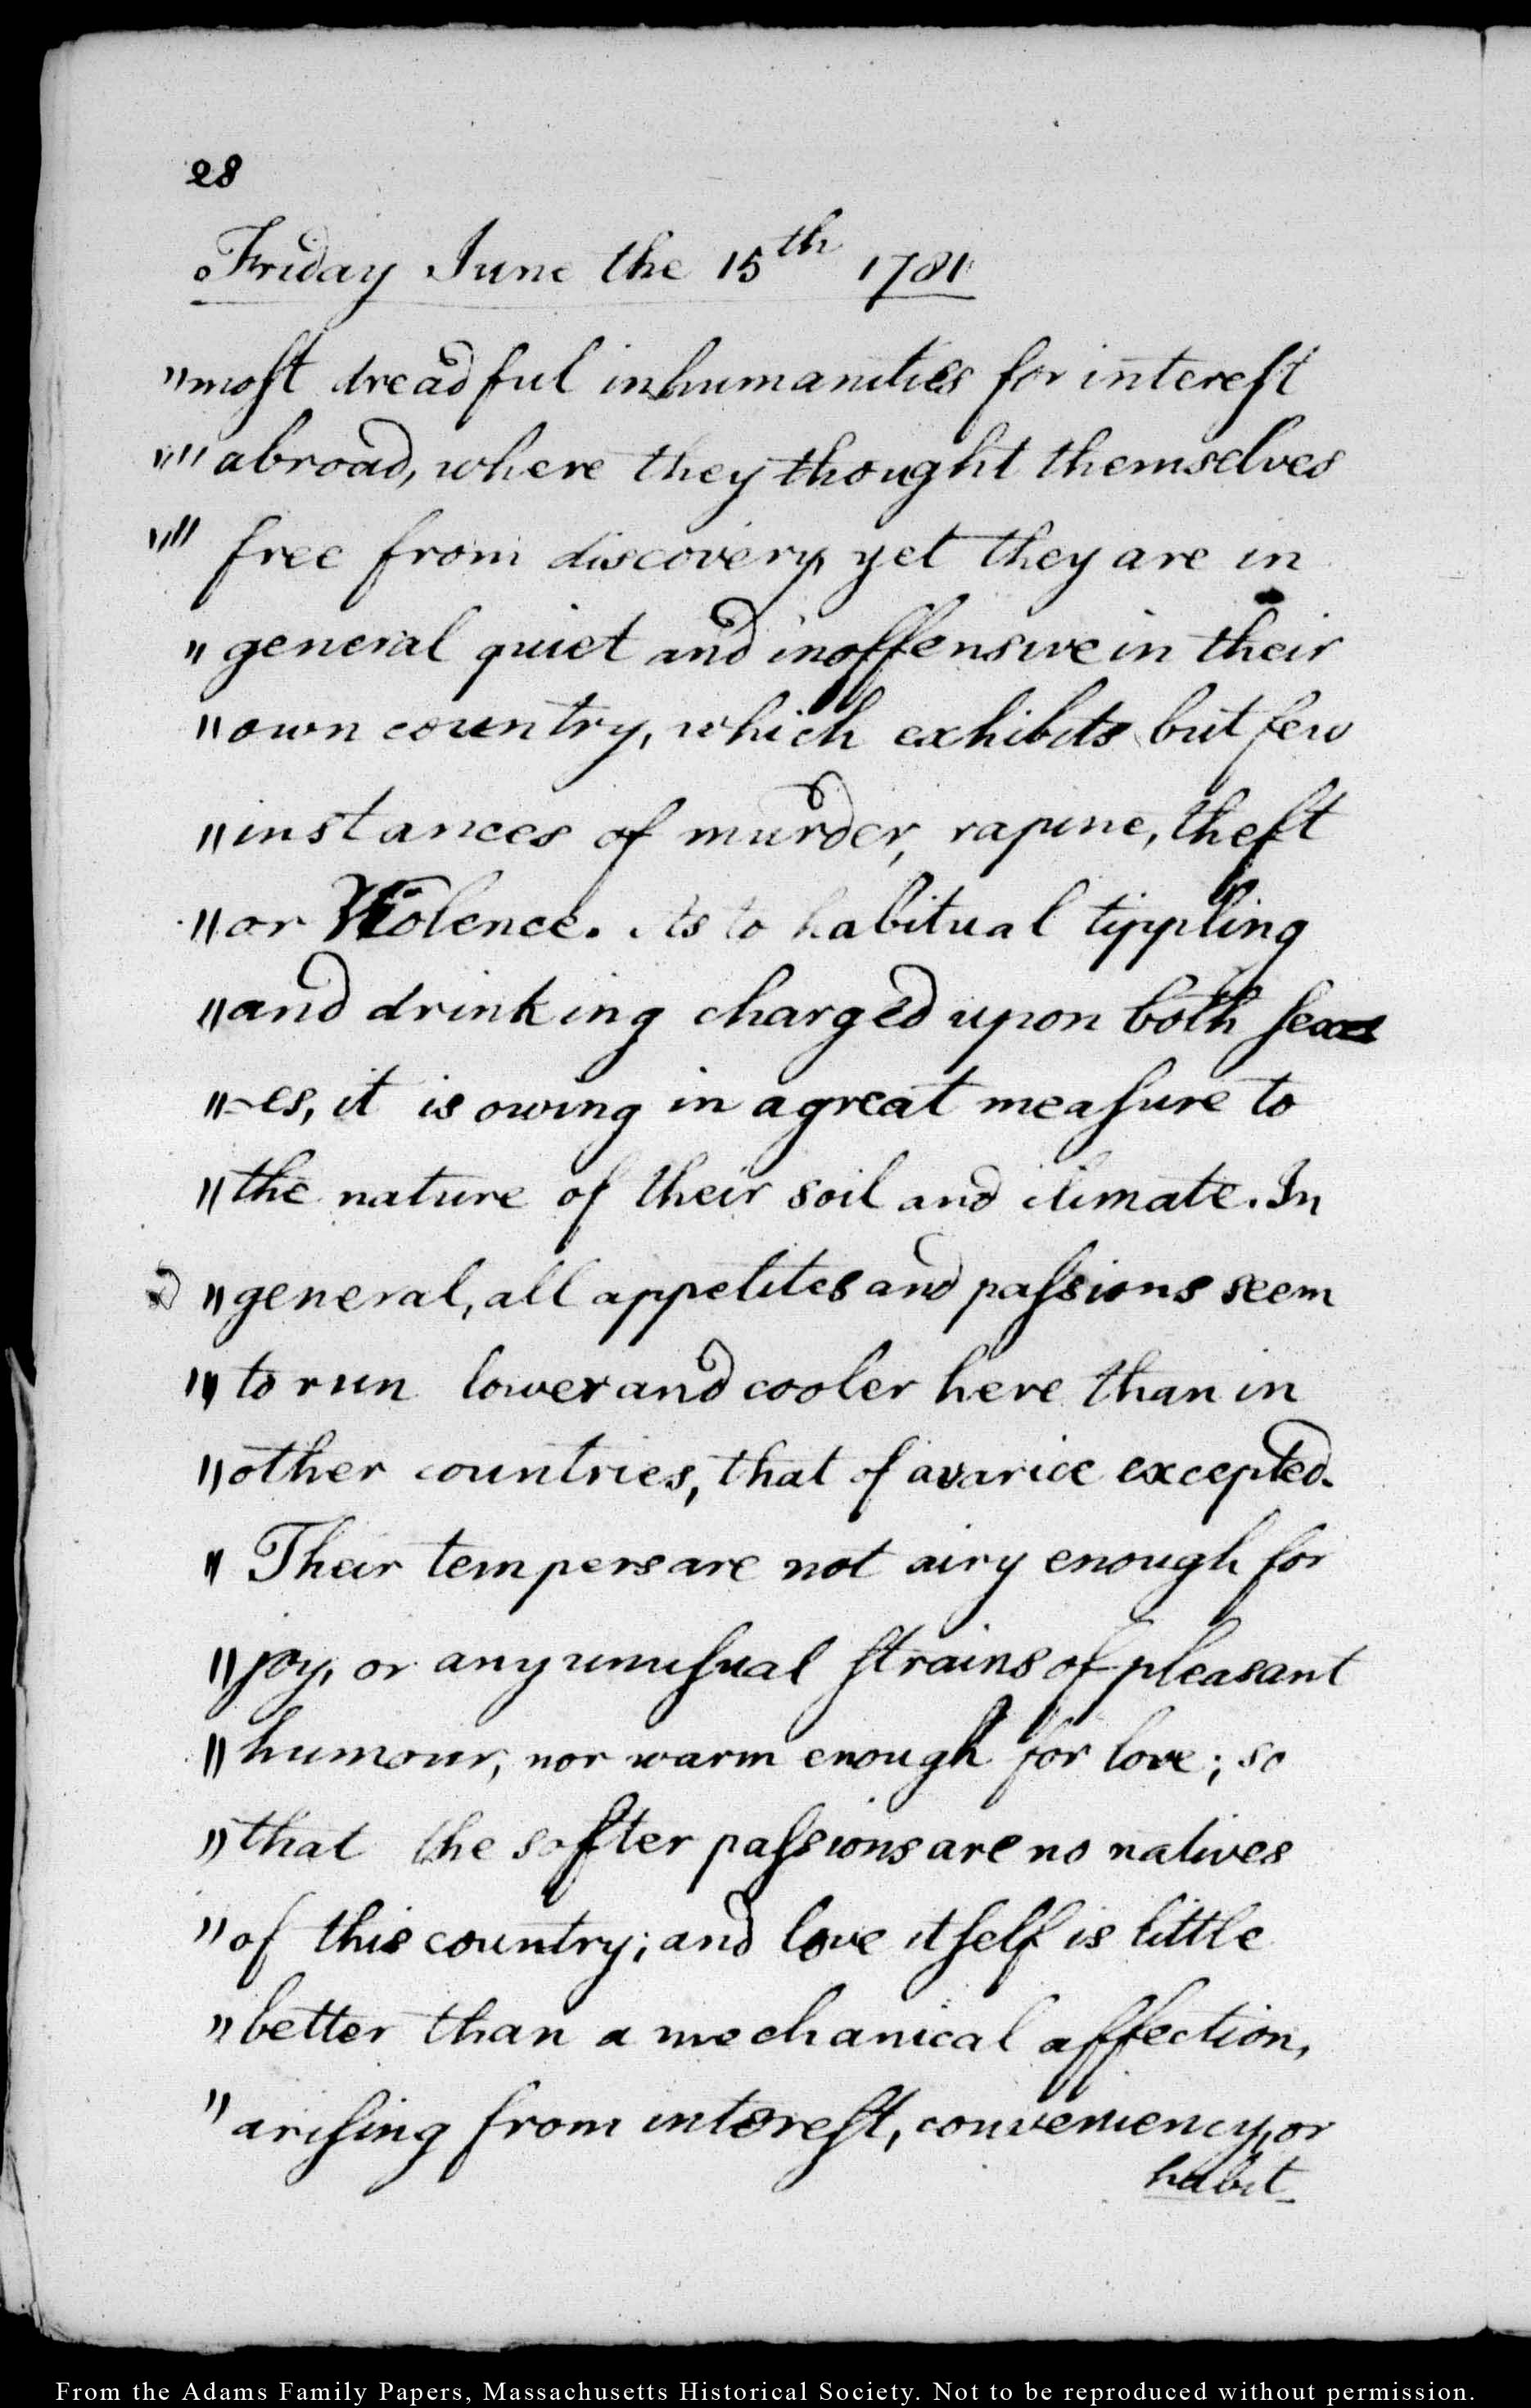 28
Friday June the 15th 1781
"most dreadful inhumanities for interest
""abroad, where they thought themselves
"" free from discovery, yet they are in
" general quiet and inoffensive in their
"own country, which exhibits but few
"instances of murder, rapine, theft
"or Violence. As to habitual tippling
"and drinking charged upon both sex
"-es, it is owing in a great measure to
"the nature of their soil and climate. In
"general, all appetites and passions seem
"to run lower and cooler here than in
"other countries, that of avarice excepted.
" Their tempers are not airy enough for
"joy, or any unusual strains of pleasant
"humour, nor warm enough for love; so
"that the softer passions are no natives
"of this country; and love itself is little
"better than a mechanical affection,
"arising from interest, conveniency, or
habit
From the Adams Family Papers, Massachusetts Historical Society. Not to be reproduced without permission.